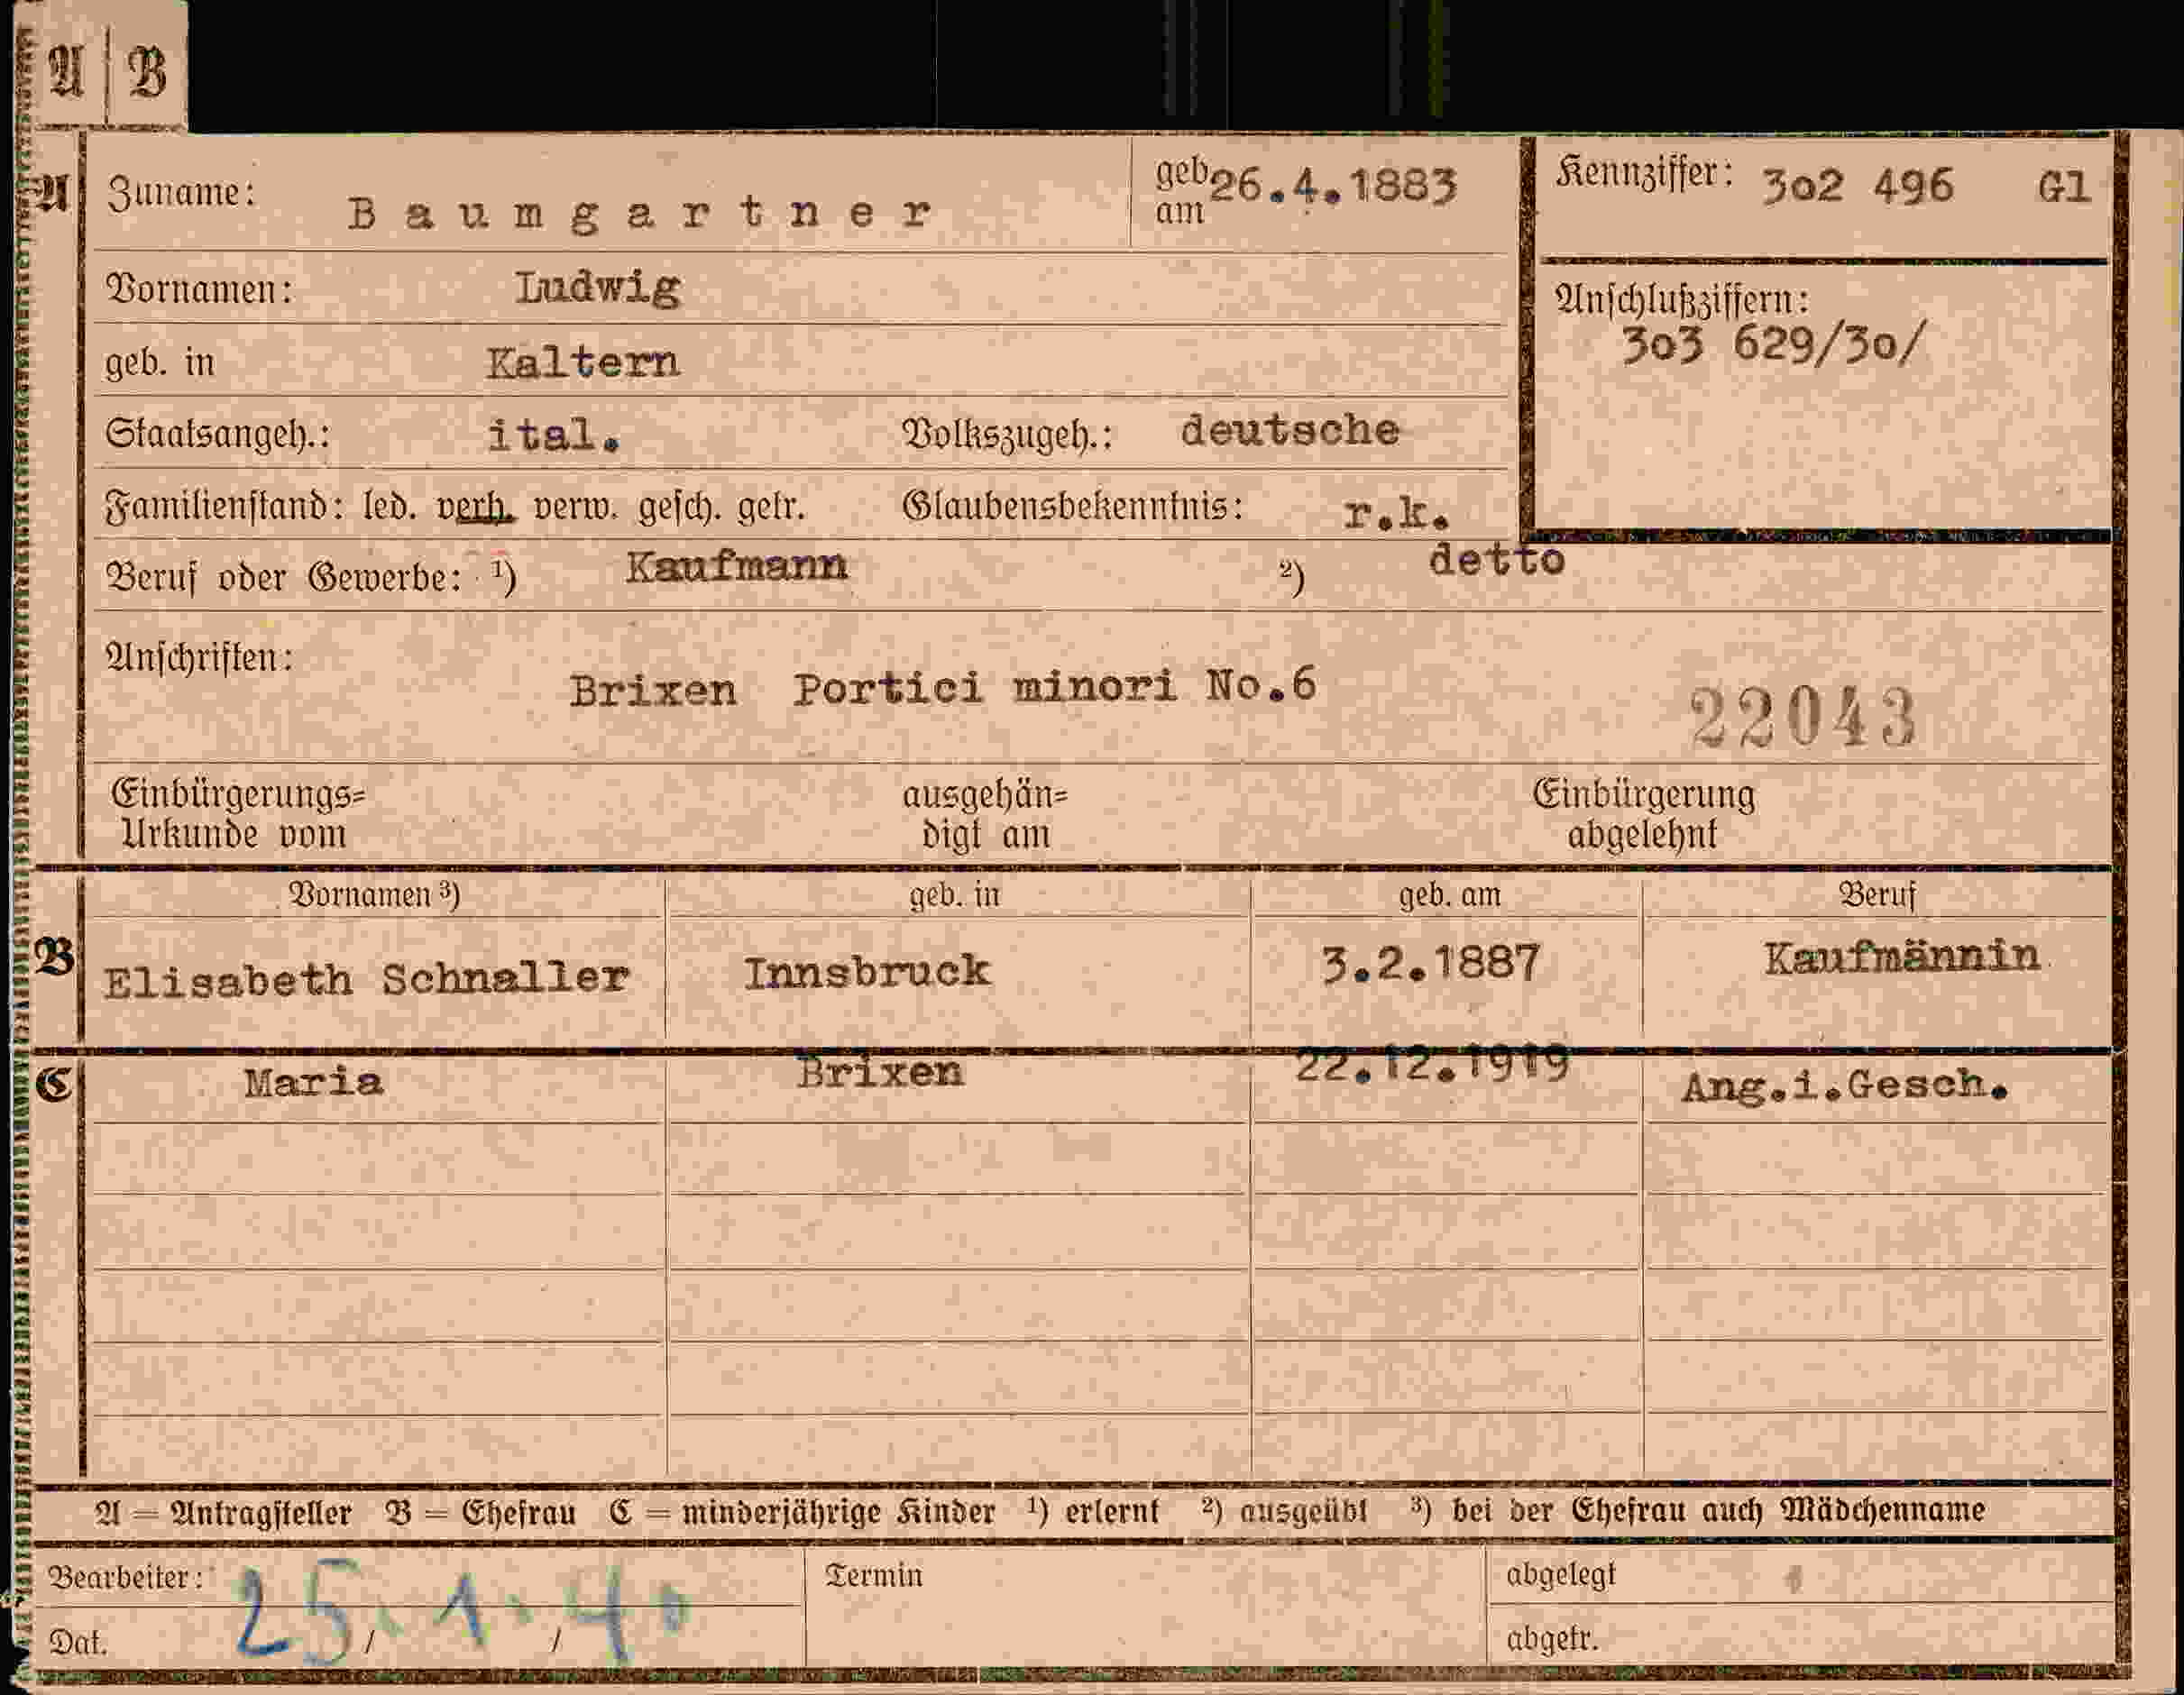 A | B
A Zuname: Baumgartner geb. am 26.4.1883 Kennziffer: 302 496 Gl
Vornamen: Ludwig
Anschlußziffern: 303 629/30/
geb. in Kaltern
Staatsangeh.: ital. Volkszugeh.: deutsche
Familienstand: led. verh. verw. gesch. getr. Glaubensbekenntnis: r.k.
Beruf oder Gewerbe: 1) Kaufmann 2) detto
Anschriften: Brixen Portici minori No.6
22043
Einbürgerungs= ausgehän= Einbürgerung
Urkunde vom digt am abgelehnt
Vornamen 3) geb. in geb. am Beruf
B Elisabeth Schnaller Innsbruck 3.2.1887 Kaufmännin
C Maria Brixen 22.12.1919 Ang.i.Gesch.
A = Antragsteller B = Ehefrau C = minderjährige Kinder 1) erlernt 2) ausgeübt 3) bei der Ehefrau auch Mädchenname
Bearbeiter: Termin abgelegt
Dat. 25.1.40 abgetr.